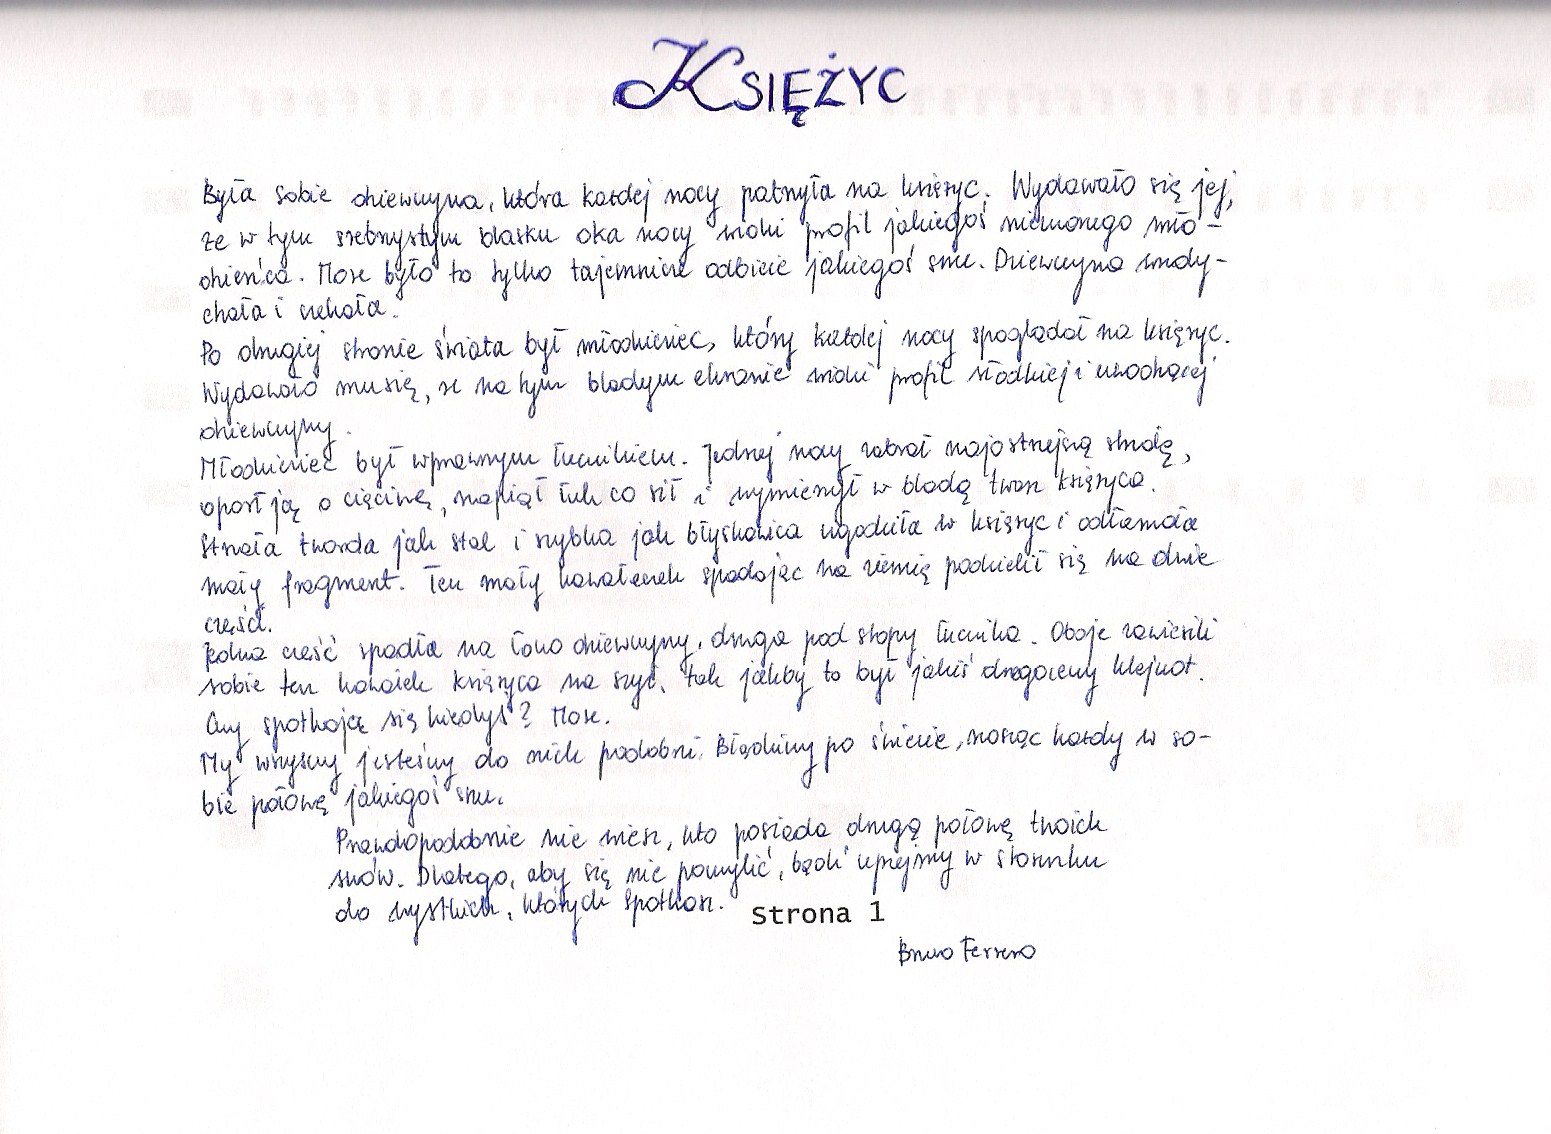 KSIĘŻYC
Była sobie dziewczyna, która każdej nocy patrzyła na księżyc. Wydawało się jej,
że w tym srebrzystym blasku oka nocy widzi profil jakiegoś nieznanego mło-
dzieńca. Może było to tylko tajemnicze odbicie jakiegoś snu. Dziewczyna wzdy-
chała i czekała.
Po drugiej stronie świata był młodzieniec, który każdej nocy spoglądał na księżyc.
Wydawało mu się, że na tym bladym ekranie widzi profil słodkiej i uroczej
dziewczyny.
Młodzieniec był wprawnym łucznikiem. Jednej nocy zabrał najostrzejszą strzałę,
oparł ją o cięciwę, napiął łuk co sił i wymierzył w bladą twarz księżyca.
Strzała twarda jak stal i szybka jak błyskawica ugodziła w księżyc i odłamała
mały fragment. Ten mały kawałeczek spadając na ziemię podzielił się na dwie
części.
Jedna część spadła na łono dziewczyny, druga pod stopy łucznika. Oboje zawiesili
sobie ten kawałek księżyca na szyi, tak jakby to był jakiś drogocenny klejnot.
Czy spotkają się kiedyś? Może.
My wszyscy jesteśmy do nich podobni. Błądzimy po świecie, nosząc każdy w so-
bie połowę jakiegoś snu.
Prawdopodobnie nie wiesz, kto posiada drugą połowę twoich
snów. Dlatego, aby się nie pomylić, bądź uprzejmy w stosunku
do wszystkich, których spotkasz.
Strona 1
Bruno Ferrero